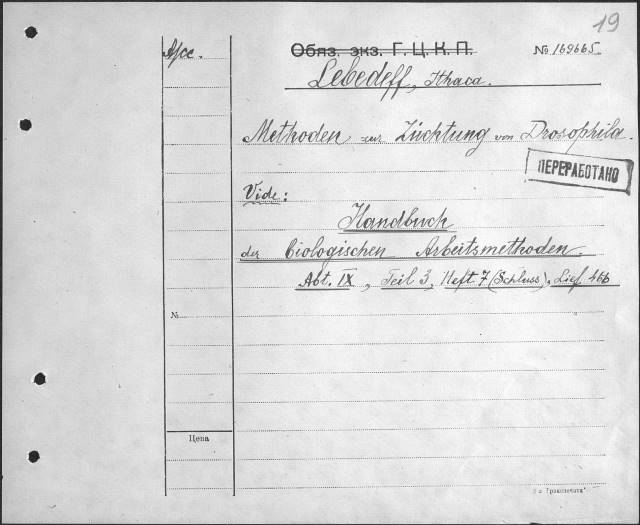 19
Обяз. экз. Г.Ц.К.П.
№ 169665
Lebedeff, Ithaca.
Methoden zur Züchtung von Drosophila.
ПЕРЕРАБОТАНО
Vide:
Handbuch
der biologischen Arbeitsmethoden.
Abt. IX, Teil 3, Heft 7 (Schluss), Lief. 466
№
Цена